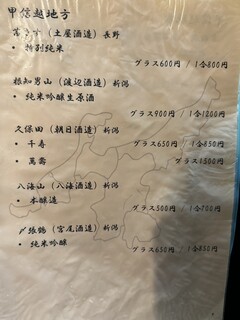 甲信越地方
(土屋酒造) 長野
• 特別純米
グラス600円 / 1合800円
根知男山 (渡辺酒造) 新潟
• 純米吟醸生原酒
グラス900円 / 1合1200円
久保田 (朝日酒造) 新潟
• 千寿
グラス650円 / 1合850円
• 萬壽
グラス1500円
八海山 (八海酒造) 新潟
• 本醸造
グラス500円 / 1合700円
〆張鶴 (宮尾酒造) 新潟
• 純米吟醸
グラス650円 / 1合850円